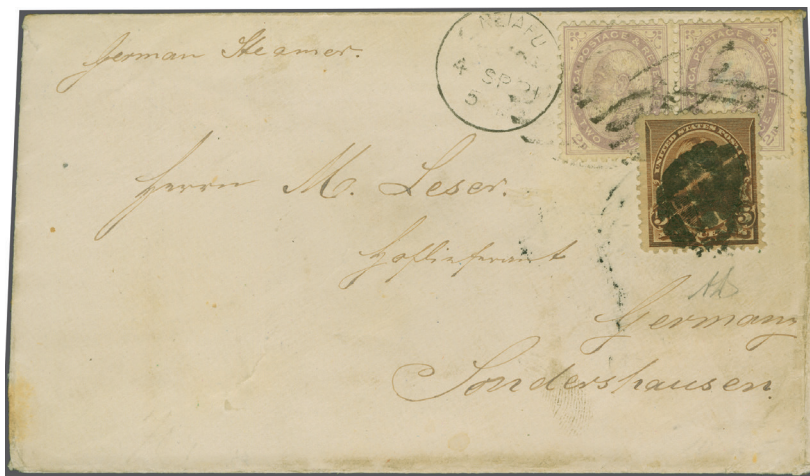 German Steamer.
NEIAFU
4 SP 91
5
GA POSTAGE & REVENUE
TWO
2D
GA POSTAGE & REVENUE
2D
UNITED STATES POST
Herrn M. Leser.
Hoflieferant
Germany
Sondershausen.